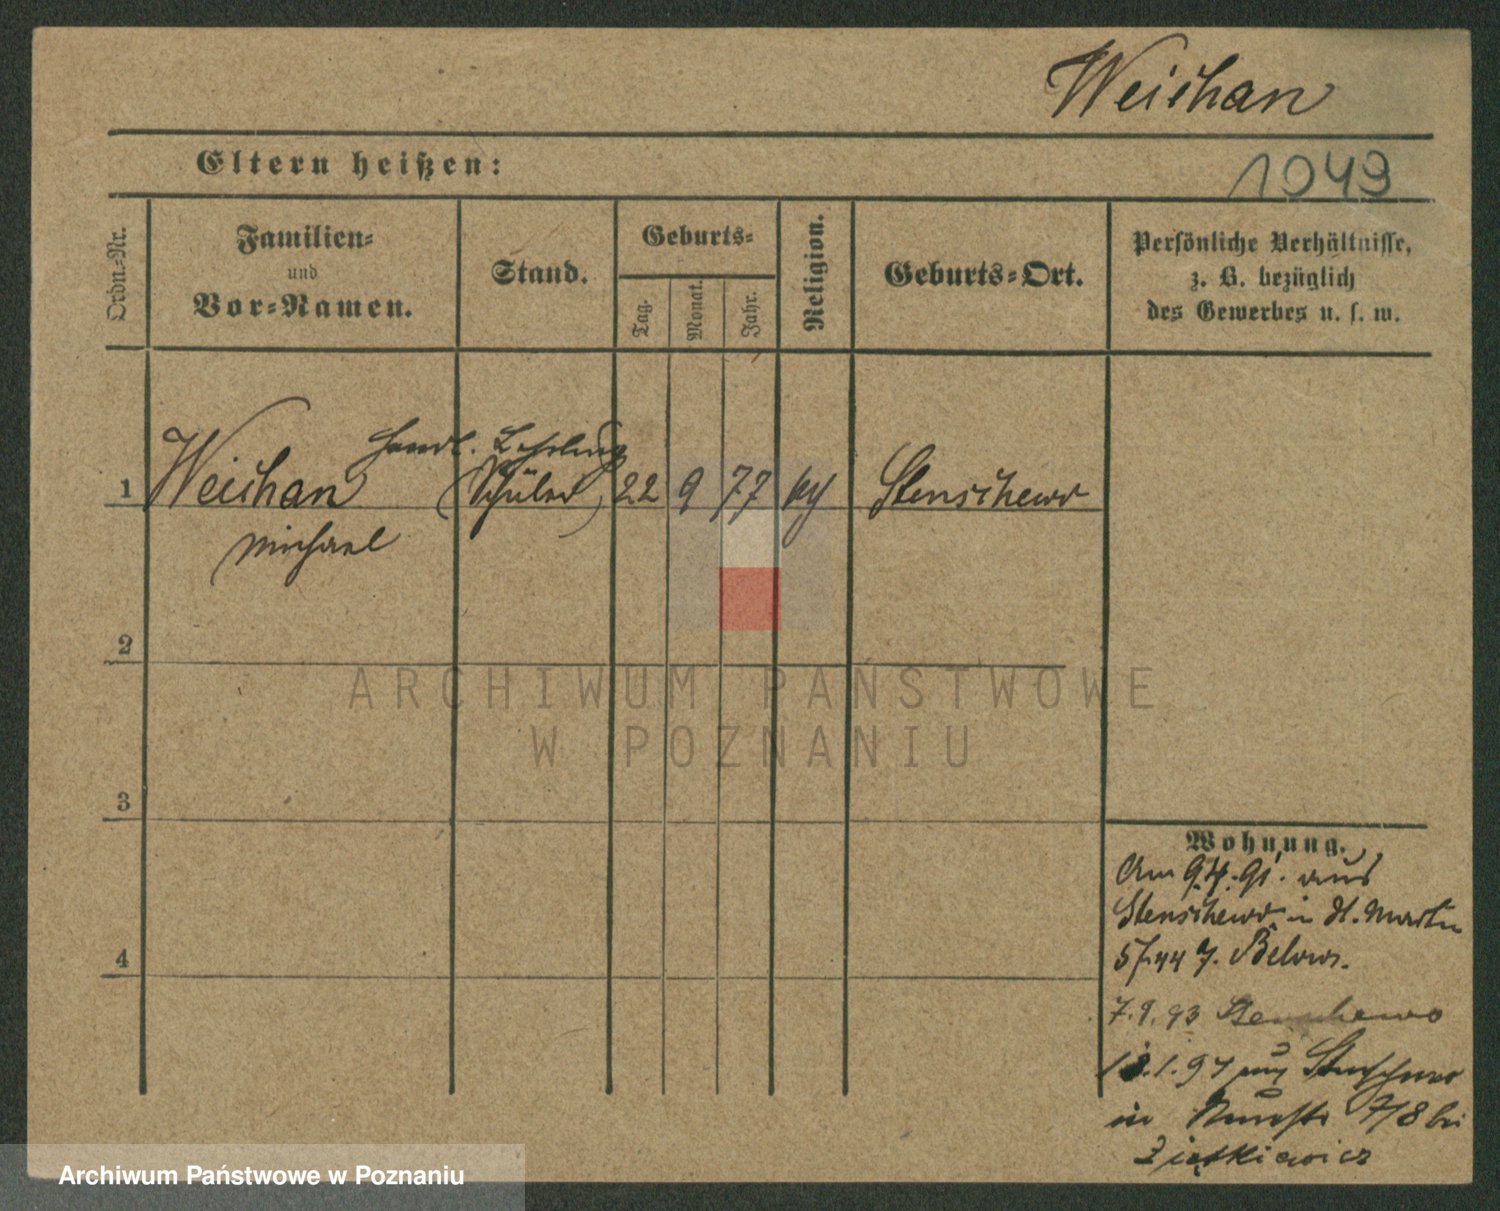 Weichan
Eltern heißen:
1049
Ordn.-Nr.
Familien-
und
Vor-Namen.
Stand.
Geburts-
Tag.
Monat.
Jahr.
Religion.
Geburts-Ort.
Persönliche Verhältnisse,
z. B. bezüglich
des Gewerbes u. s. w.
Handl. Lehrling
1 Weichan (Schüler) 22 9 77 Stenschewo
Michael
2
ARCHIWUM PAŃSTWOWE
W POZNANIU
3
Wohnung.
Am 9.4.91. aus
Stenschewo in St. Martin
57.44 Below.
4
7.9.93 Stenschewo
1.97 aus Stenschewo
in 7/8 bei
Ziętkiewicz
Archiwum Państwowe w Poznaniu